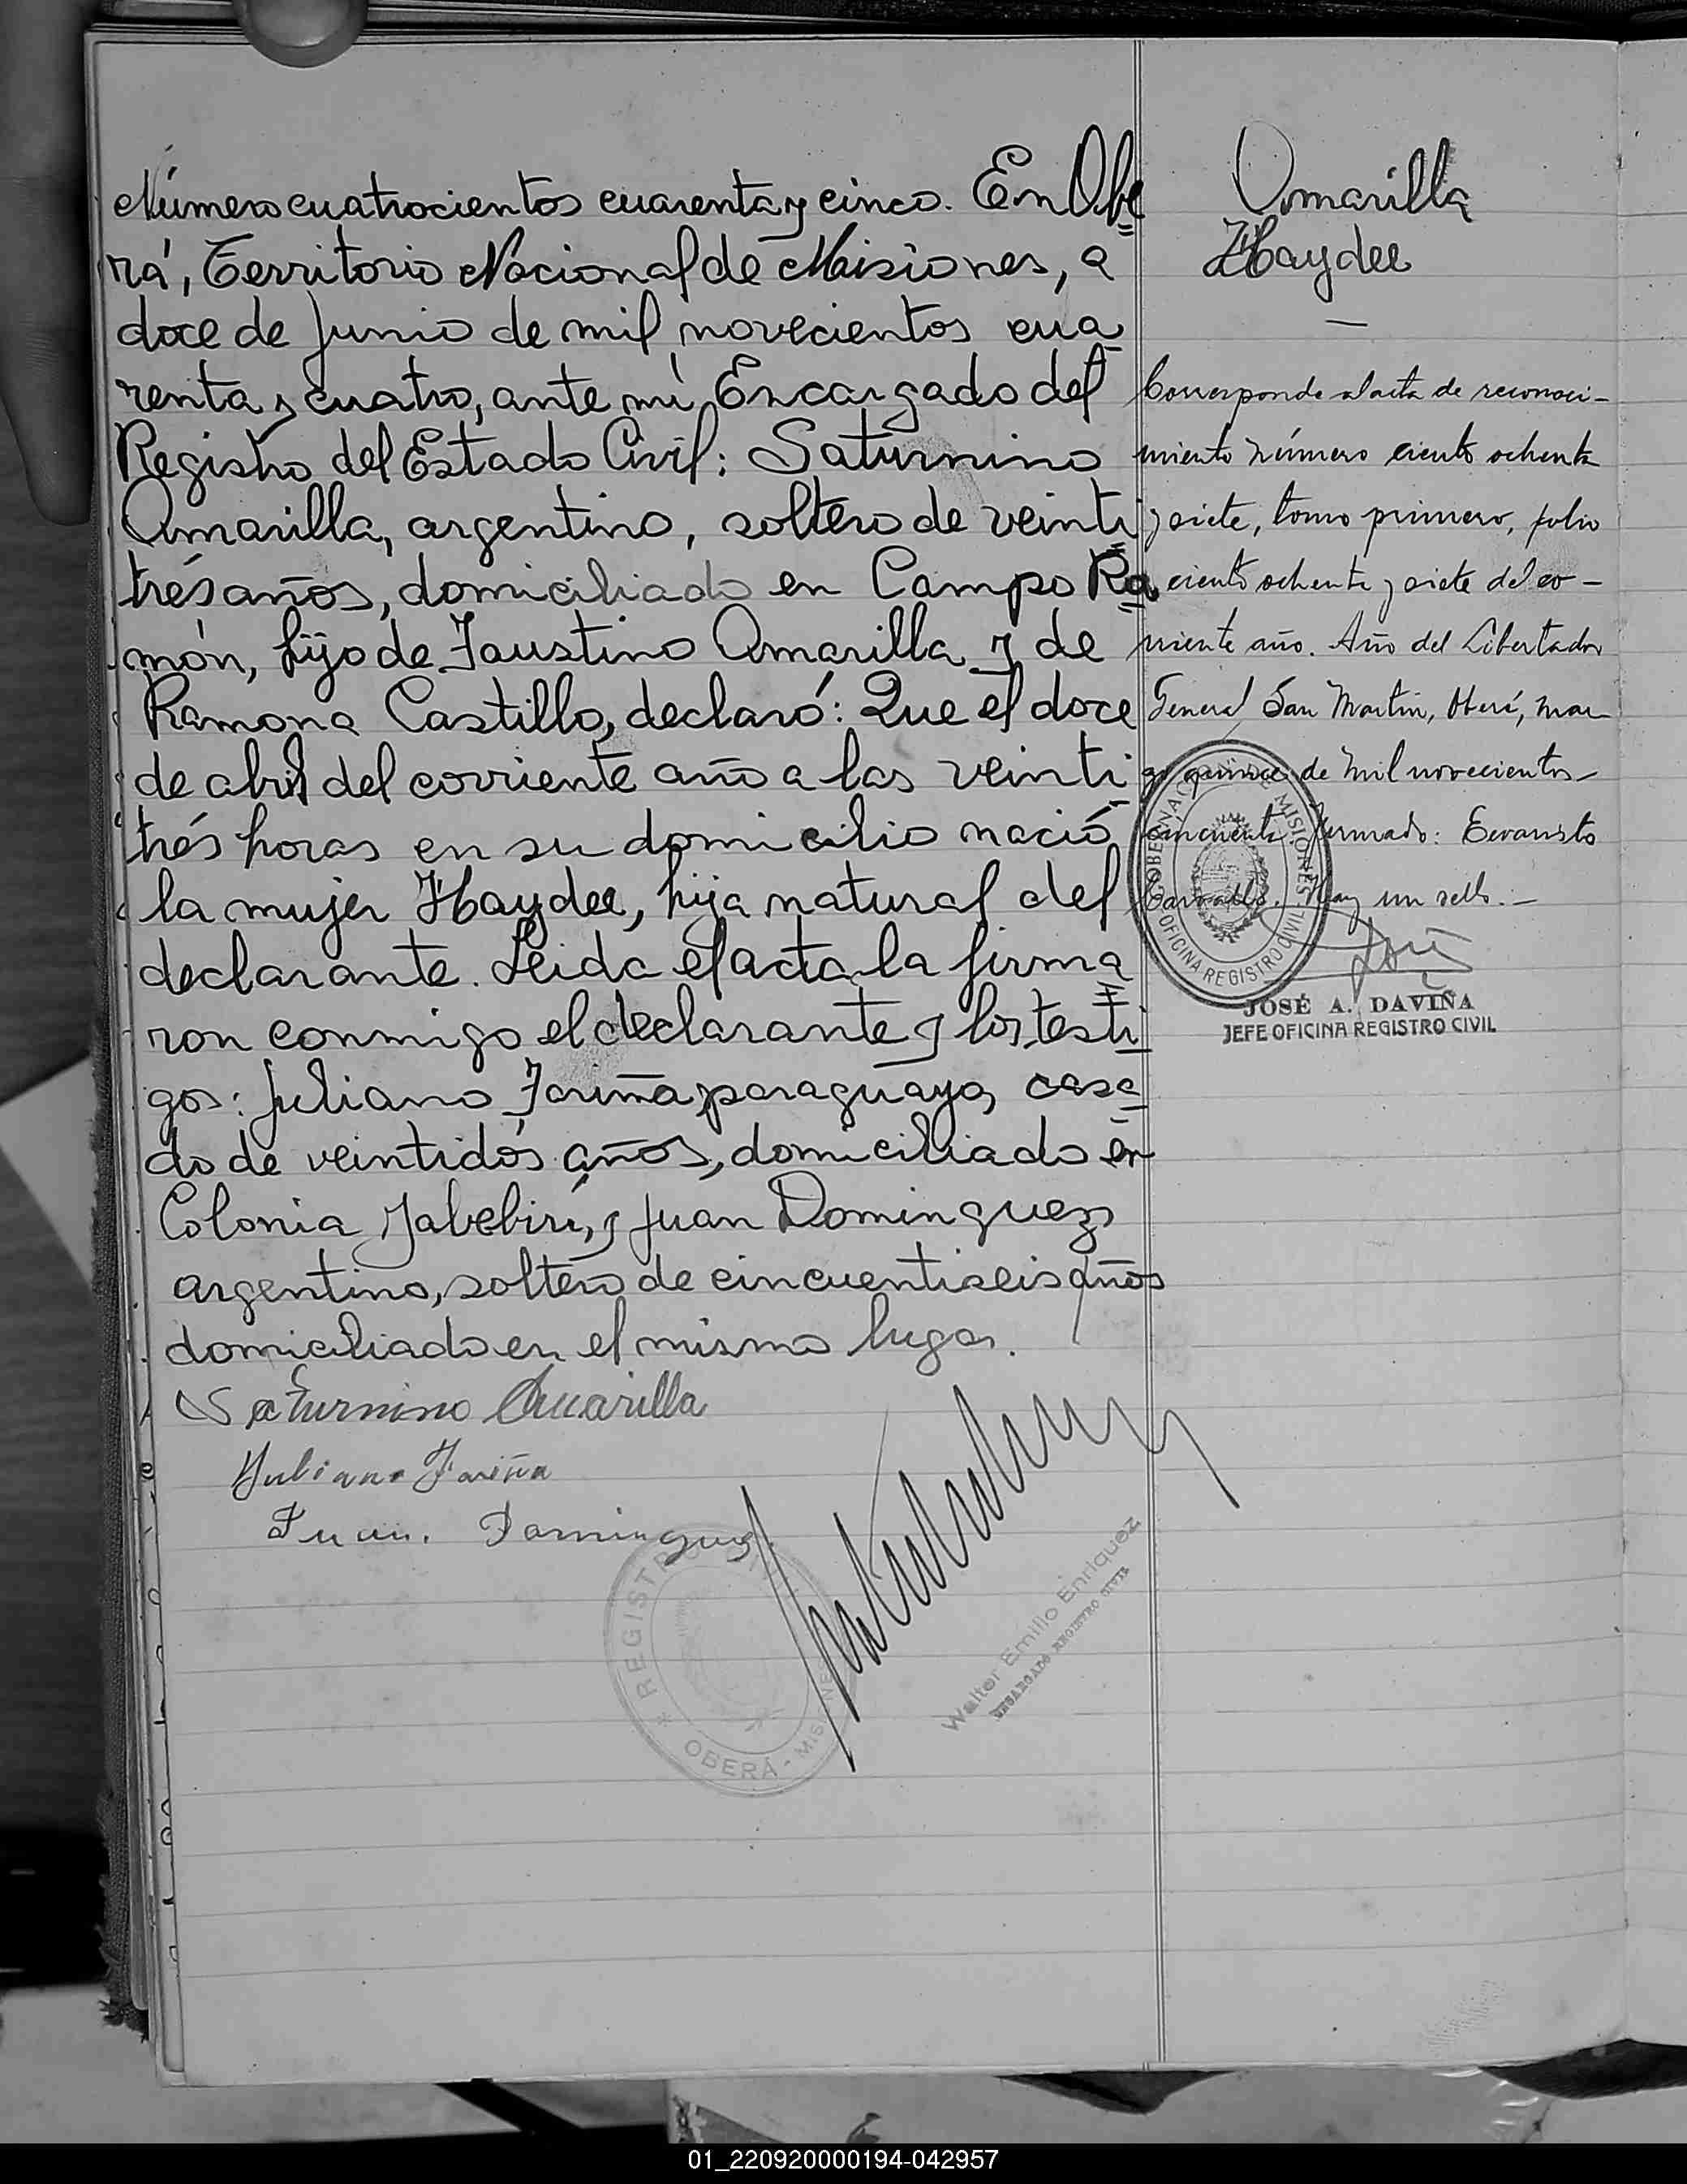 Número cuatrocientos cuarenta y cinco. En Obe=
rá, Territorio Nacional de Misiones, a
doce de Junio de mil novecientos cua
renta y cuatro, ante mí Encargado del
Registro del Estado Civil: Saturnino
Amarilla, argentino, soltero de veinti
trés años, domiciliado en Campo Ra=
món, hijo de Faustino Amarilla y de
Ramona Castillo, declaró: Que el doce
de abril del corriente año a las veinti
trés horas en su domicilio nació
la mujer Haydee, hija natural del
declarante. Leida el acta la firma
ron conmigo el declarante y los testi
gos: Juliano Fariña, paraguayo, casa
do de veintidós años, domiciliado en
Colonia Yabebirí, y Juan Dominguez
argentino, soltero de cincuentiseis años
domiciliado en el mismo lugar.
Saturnino Amarilla
Juliano Fariña
Juan. Dominguez
REGISTRO
OBERÁ - MISIONES
Walter Emilio Enriquez
ENCARGADO REGISTRO CIVIL
Amarilla
Haydee
Corresponde al acta de reconoci-
miento número ciento ochenta
y siete, tomo primero, folio
ciento ochenta y siete del co-
rriente año. Año del Libertador
General San Martin, Oberá, mar-
zo quince de mil novecientos-
cincuenta. Firmado: Evaristo
Carvallo. Hay un sello.-
GOBERNACION DE MISIONES
OFICINA REGISTRO CIVIL
JOSÉ A. DAVIÑA
JEFE OFICINA REGISTRO CIVIL
01_220920000194-042957